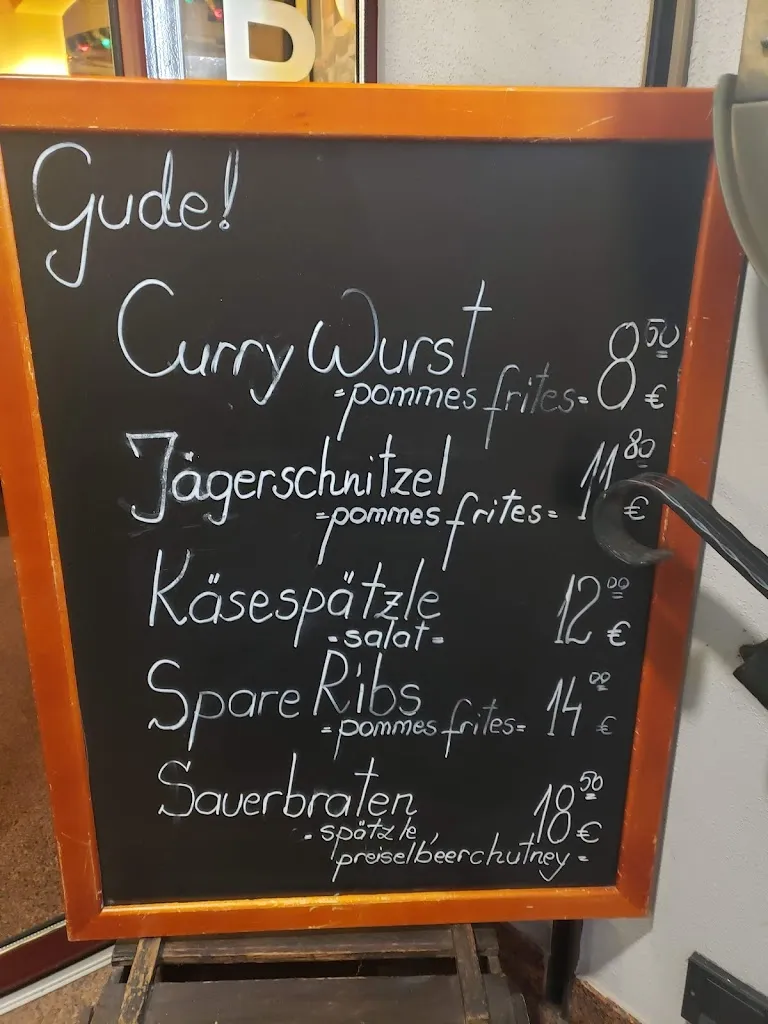 B
Gude!
Curry Wurst 8 50 €
=pommes frites=
Jägerschnitzel 11 80 €
=pommes frites=
Käsespätzle 12 00 €
-salat=
Spare Ribs 14 00 €
=pommes frites=
Sauerbraten 18 50 €
-spätzle,
preiselbeerchutney=